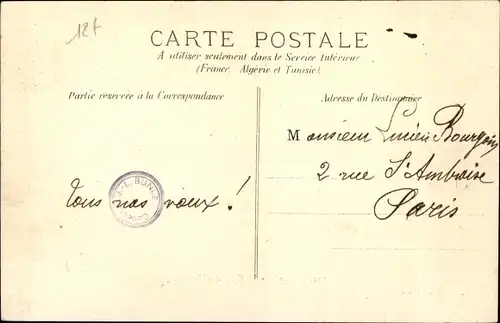 12f
CARTE POSTALE
A utiliser seulement dans le Service Intérieur
(France, Algérie et Tunisie).
Partie réservée à la Correspondance
Adresse du Destinataire
Monsieur Lucien Bourgoin
2 rue St Ambroise
Paris
Tous nos vœux !
J.-L. BONIZ